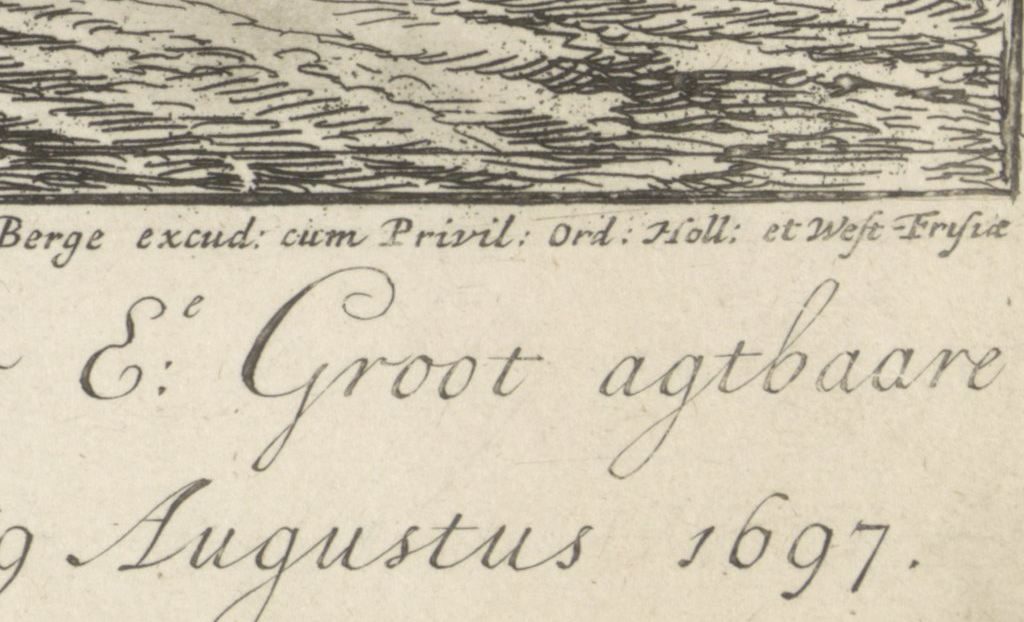 Berge excud: cum Privil: Ord: Holl: et West-Frisiæ
E:ᵉ Groot agtbaare
9 Augustus 1697.